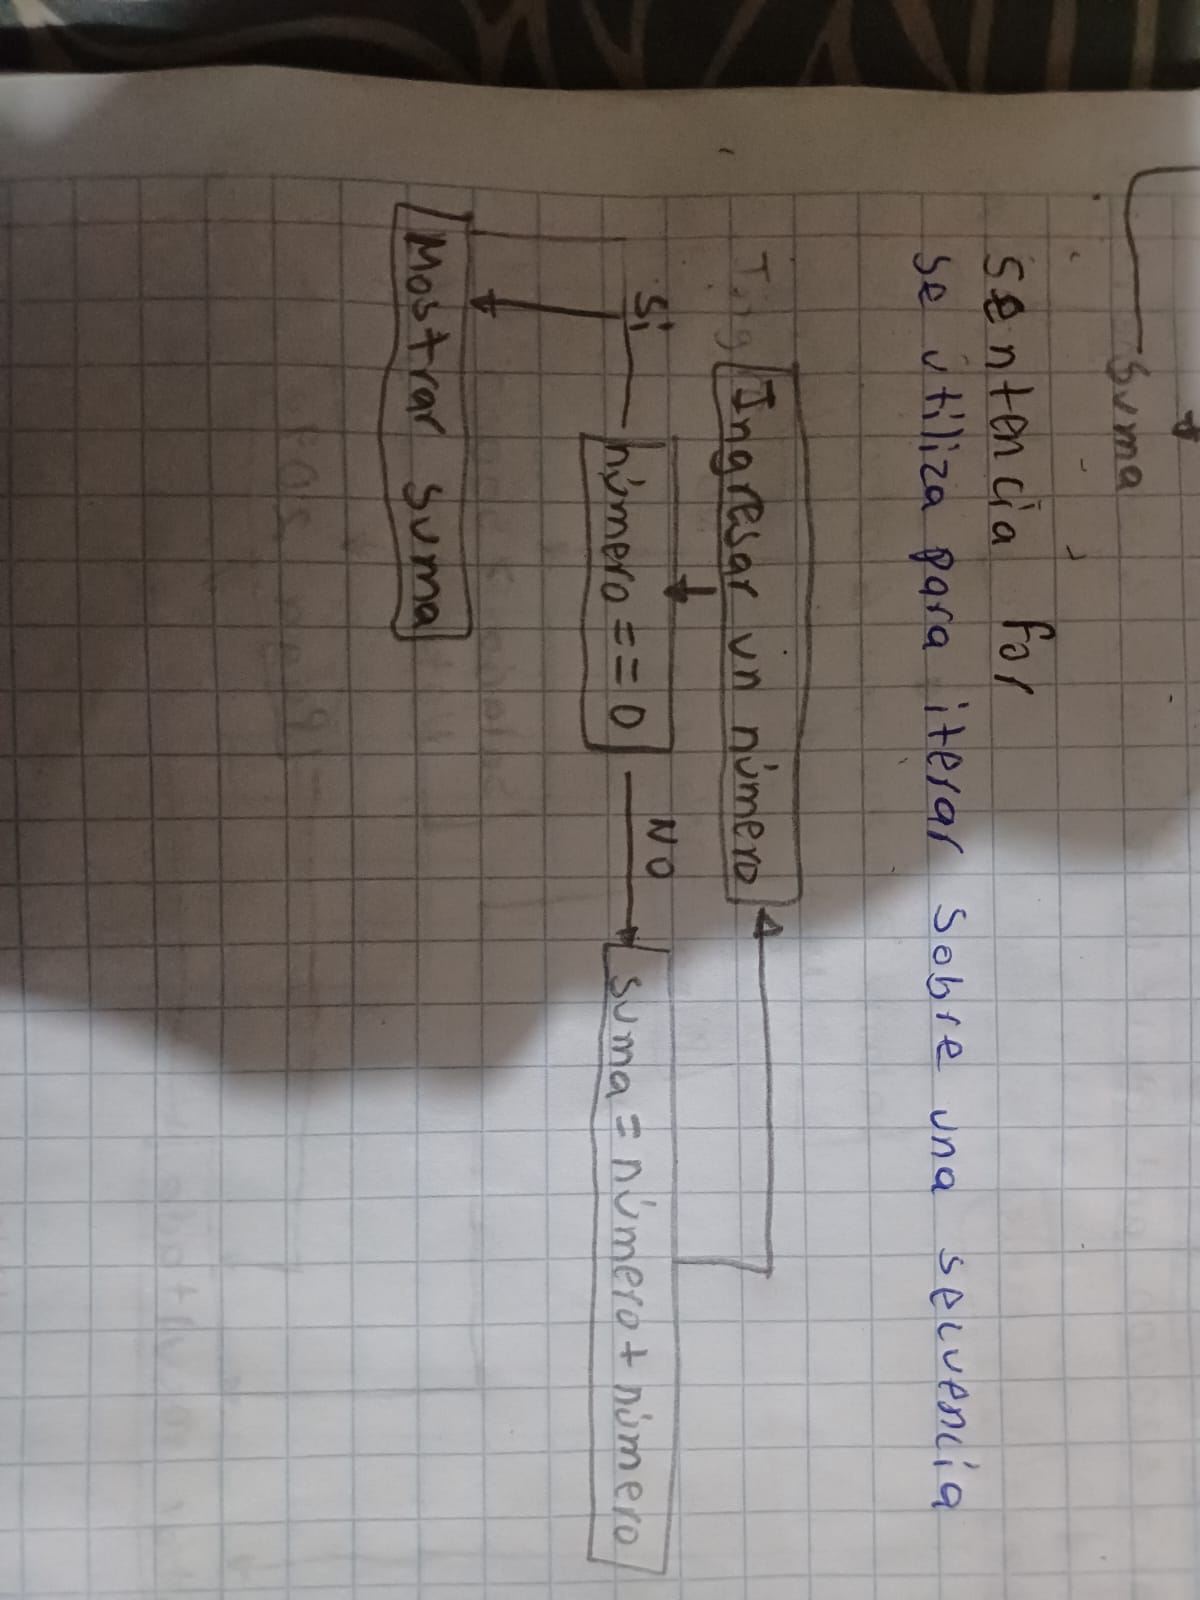 Suma
Sentencia for
Se utiliza para iterar sobre una secuencia
Ingresar un número
Si
número == 0
NO
suma = número + número
Mostrar suma